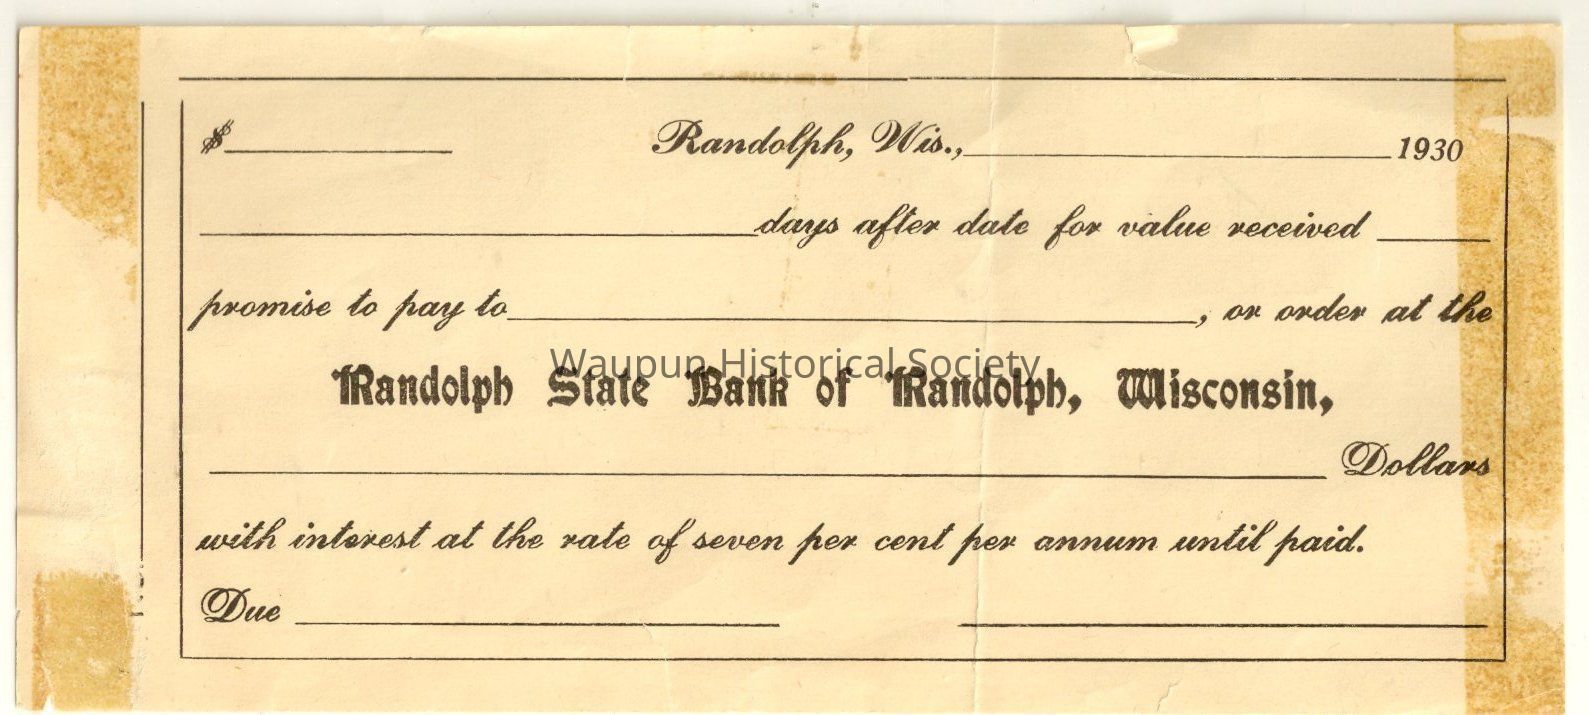 $ Randolph, Wis., 1930
days after date for value received
promise to pay to , or order at the
Waupun Historical Society
Randolph State Bank of Randolph, Wisconsin,
Dollars
with interest at the rate of seven per cent per annum until paid.
Due